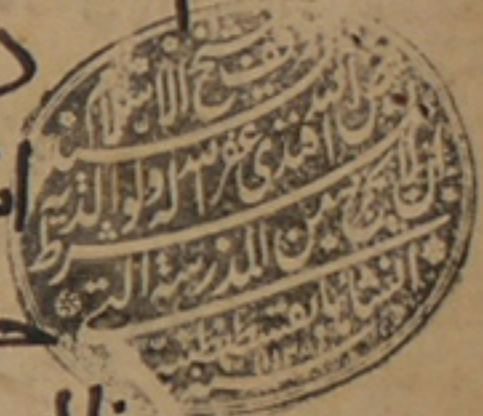 شيخ الاسلام
فيض الله افندي غفر الله له ولوالديه
بشرط ان لا يخرج من المدرسة التي
انشاها بقسطنطينية